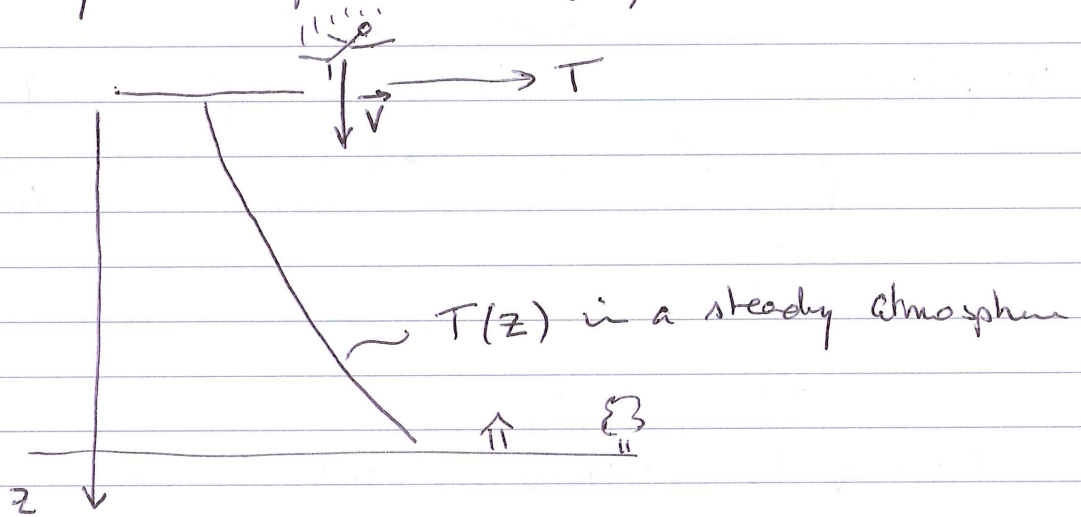 T
V
T(z) in a steady atmosphere
z